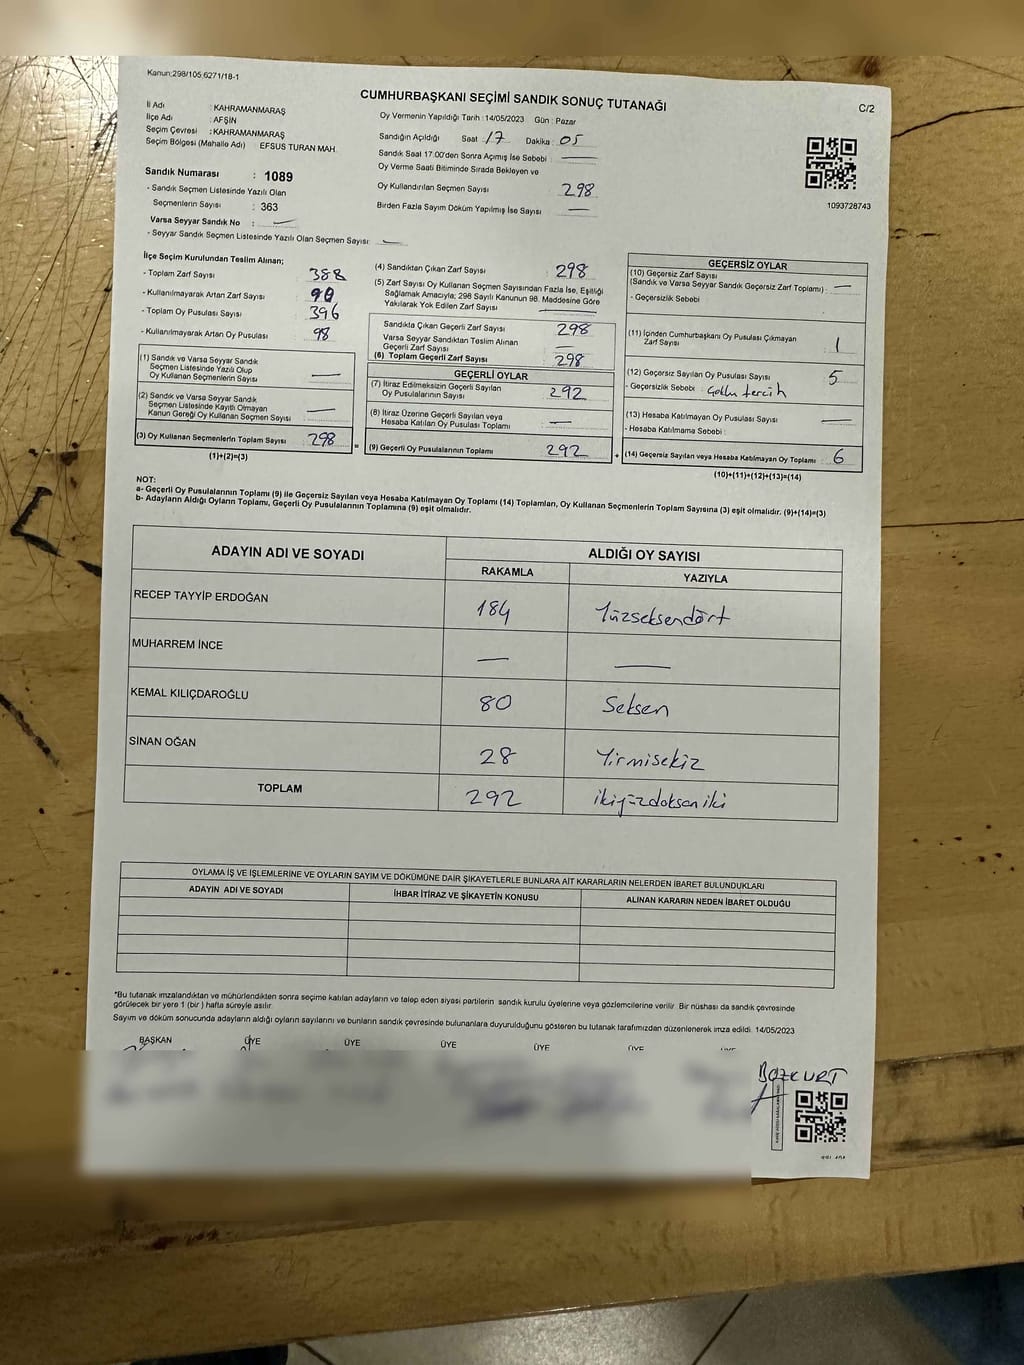 Kanun:298/105,6271/18-1
CUMHURBAŞKANI SEÇİMİ SANDIK SONUÇ TUTANAĞI
C/2
İl Adı : KAHRAMANMARAŞ
İlçe Adı : AFŞİN
Seçim Çevresi : KAHRAMANMARAŞ
Seçim Bölgesi (Mahalle Adı) : EFSUS TURAN MAH.
Sandık Numarası : 1089
- Sandık Seçmen Listesinde Yazılı Olan
Seçmenlerin Sayısı : 363
Varsa Seyyar Sandık No : —
- Seyyar Sandık Seçmen Listesinde Yazılı Olan Seçmen Sayısı: —
Oy Vermenin Yapıldığı Tarih : 14/05/2023 Gün : Pazar
Sandığın Açıldığı Saat : 17 Dakika : 05
Sandık Saat 17.00'den Sonra Açımış İse Sebebi : —
Oy Verme Saati Bitiminde Sırada Bekleyen ve
Oy Kullandırılan Seçmen Sayısı 298
Birden Fazla Sayım Döküm Yapılmış İse Sayısı —
1093728743
İlçe Seçim Kurulundan Teslim Alınan;
- Toplam Zarf Sayısı 388
- Kullanılmayarak Artan Zarf Sayısı 90
- Toplam Oy Pusulası Sayısı 396
- Kullanılmayarak Artan Oy Pusulası 98
(1) Sandık ve Varsa Seyyar Sandık
Seçmen Listesinde Yazılı Olup
Oy Kullanan Seçmenlerin Sayısı —
(2) Sandık ve Varsa Seyyar Sandık
Seçmen Listesinde Kayıtlı Olmayan
Kanun Gereği Oy Kullanan Seçmen Sayısı —
(3) Oy Kullanan Seçmenlerin Toplam Sayısı 298
(1)+(2)=(3)
(4) Sandıktan Çıkan Zarf Sayısı 298
(5) Zarf Sayısı Oy Kullanan Seçmen Sayısından Fazla İse, Eşitliği
Sağlamak Amacıyla; 298 Sayılı Kanunun 98. Maddesine Göre
Yakılarak Yok Edilen Zarf Sayısı —
Sandıkta Çıkan Geçerli Zarf Sayısı 298
Varsa Seyyar Sandıktan Teslim Alınan
Geçerli Zarf Sayısı —
(6) Toplam Geçerli Zarf Sayısı 298
GEÇERLİ OYLAR
(7) İtiraz Edilmeksizin Geçerli Sayılan
Oy Pusulalarının Sayısı 292
(8) İtiraz Üzerine Geçerli Sayılan veya
Hesaba Katılan Oy Pusulası Toplamı —
= (9) Geçerli Oy Pusulalarının Toplamı 292
GEÇERSİZ OYLAR
(10) Geçersiz Zarf Sayısı
(Sandık ve Varsa Seyyar Sandık Geçersiz Zarf Toplamı) : —
- Geçersizlik Sebebi
(11) İçinden Cumhurbaşkanı Oy Pusulası Çıkmayan
Zarf Sayısı 1
(12) Geçersiz Sayılan Oy Pusulası Sayısı 5
- Geçersizlik Sebebi : Çoklu tercih
(13) Hesaba Katılmayan Oy Pusulası Sayısı —
- Hesaba Katılmama Sebebi :
+ (14) Geçersiz Sayılan veya Hesaba Katılmayan Oy Toplamı 6
(10)+(11)+(12)+(13)=(14)
NOT:
a- Geçerli Oy Pusulalarının Toplamı (9) ile Geçersiz Sayılan veya Hesaba Katılmayan Oy Toplamı (14) Toplamları, Oy Kullanan Seçmenlerin Toplam Sayısına (3) eşit olmalıdır. (9)+(14)=(3)
b- Adayların Aldığı Oyların Toplamı, Geçerli Oy Pusulalarının Toplamına (9) eşit olmalıdır.
ADAYIN ADI VE SOYADI ALDIĞI OY SAYISI
RAKAMLA YAZIYLA
RECEP TAYYİP ERDOĞAN 184 Yüzseksendört
MUHARREM İNCE — —
KEMAL KILIÇDAROĞLU 80 Seksen
SİNAN OĞAN 28 Yirmisekiz
TOPLAM 292 ikiyüzdoksaniki
OYLAMA İŞ VE İŞLEMLERİNE VE OYLARIN SAYIM VE DÖKÜMÜNE DAİR ŞİKAYETLERLE BUNLARA AİT KARARLARIN NELERDEN İBARET BULUNDUKLARI
ADAYIN ADI VE SOYADI İHBAR İTİRAZ VE ŞİKAYETİN KONUSU ALINAN KARARIN NEDEN İBARET OLDUĞU
*Bu tutanak imzalandıktan ve mühürlendikten sonra seçime katılan adayların ve talep eden siyasi partilerin sandık kurulu üyelerine veya gözlemcilerine verilir. Bir nüshası da sandık çevresinde
görülecek bir yere 1 (bir) hafta süreyle asılır.
Sayım ve döküm sonucunda adayların aldığı oyların sayılarını ve bunların sandık çevresinde bulunanlara duyurulduğunu gösteren bu tutanak tarafımızdan düzenlenerek imza edildi. 14/05/2023
BAŞKAN ÜYE ÜYE ÜYE ÜYE ÜYE ÜYE
BOZKURT